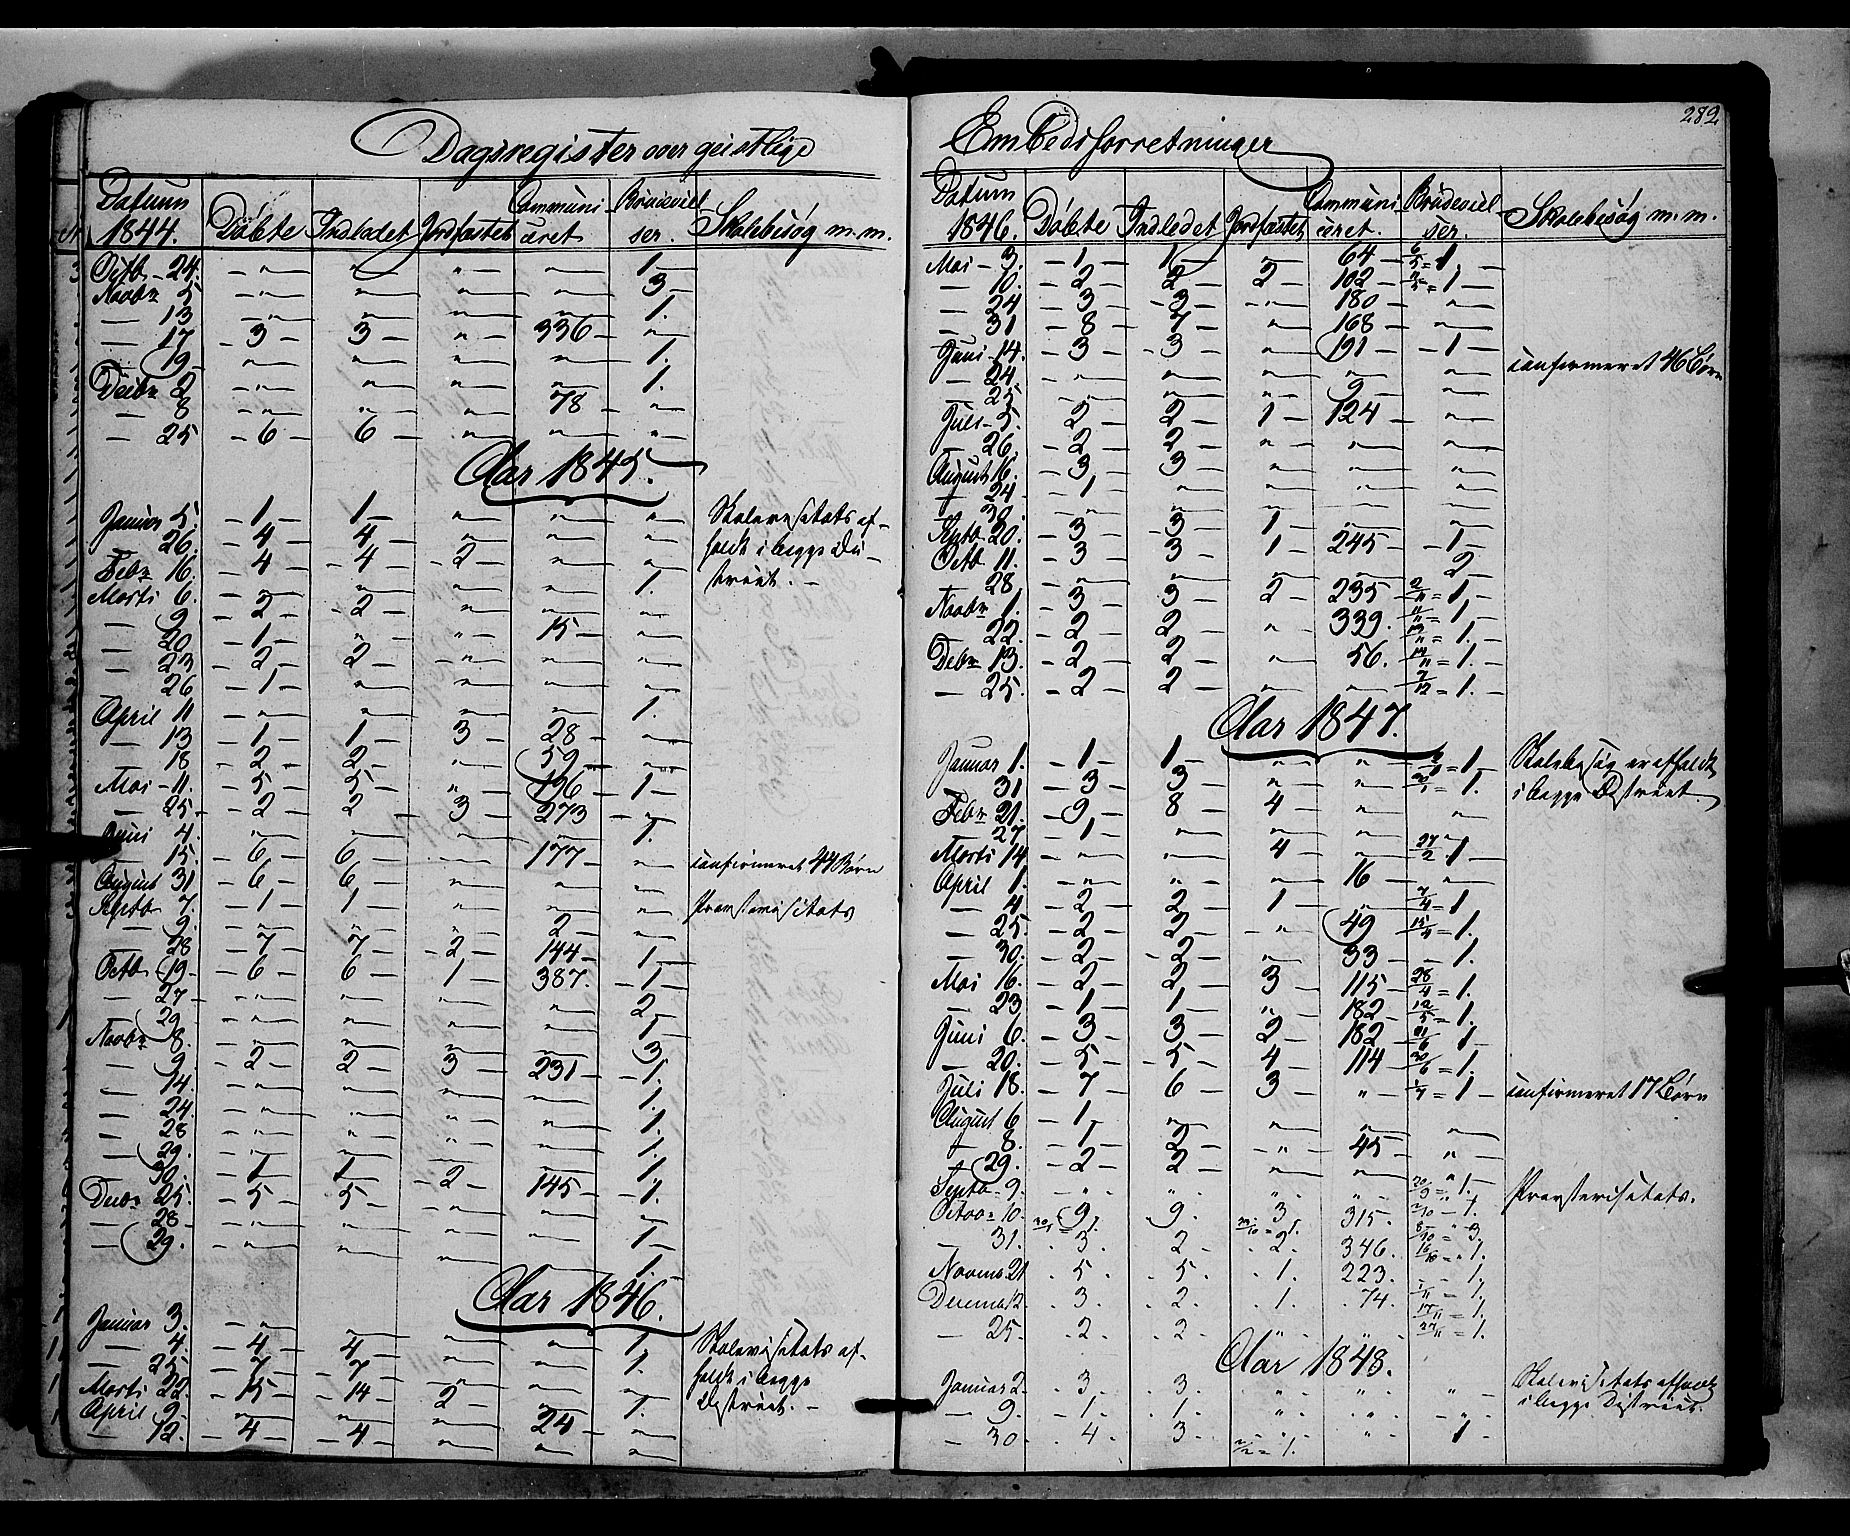 282
Dagsregister over geistlige
Embedsforretninger
Datum 1844. Døbte Indledet Jordfæstet Communiceret Brudevielser. Skolebesøg m. m.
Octb. 24. - " - " " - " - 1 -
Novbr 5 - " - " " - " - 3 -
- 13 - " - " " - " - 1.
- 17 - 3 - 3 - " - 336 - "
- 19. " " " " 1.
Decbr 2 - " - " " - " - 1.
- 8 - " - " - " - 78 - "
- 25 - 6 - 6 - " " "
Aar 1845.
Januar 5. - 1 - 1 - " " " Skolevisitats af-
26. - 4 - 4 - " " " holdt i begge Di-
Febr 16. - 4 - 4 - 2 - " " strict. -
Marts 6. - " " " " 1.
- 9 - 2 - 2 - " " "
- 20 - 1 - " " - 15 - "
- 23 - 2 - 2 - " " "
- 26 - 1 - " " " "
April 11 - " " " " 1.
- 13 - 1 - 1 - 3 - 28 - "
- 18 - 2 - 2 - " 59 - "
Mai - 11. - 5 - 5 - " - 196 - 1 -
- 25 - 2 - 2 - 3 - 273 - "
Juni 4. " " " " 1.
- 15. - 6 - 6 - " 177 - " confirmeret 44 Børn
August 31 - 6 - 6 - " " "
Septb. 7. - 1 - 1 - " " " Provstevisitats
- 9. " " " 2 - "
- 28 - 7 - 7 - 2 - 144 - 1 -
Octb. 19 - 6 - 6 - 1 - 387. - 1 -
- 27 - " " " " 2 -
- 29 - " " " " 1 -
Novbr 8. " " " " 3.
- 9 - 2 - 2 - 3 - 231 - 1.
- 14. " " " " 1.
- 24. " " " " 1.
- 28 " " " " 1.
- 29. " " " " 1.
- 30. - 1 - 1 - 2 - 145 - 1.
Decbr 25. - 5 - 5 - " " "
- 28 - " " " " 1 -
- 29. " " " " 1.
Aar 1846.
Januar 3. - " " " " 1.
- 4. - 4 - 4 - " " 1. Skolevisitats af-
- 25 - 7 - 7 - " " " holdt i begge
Marts 22. - 15 - 14 - 2 - " 1. District. -
April 9 - " " " 24 - "
- 12. - 4 - 4 - " " "
Datum 1846. Døbte Indledet Jordfæstet Communiceret. Brudevielser. Skolebesøg m. m.
Mai - 3. - 1 - 1 - " 64 - 6/5 = 1. -
- 10. - 2 - 2 - 2 - 102 - = 1 -
- 24 - 3 - 3 - " 180 - "
- 31 - 8 - 7 - " 168 - "
Juni - 14. - 3 - 3 - " 191 - 1 - confirmeret 46 Børn
- 24. - " " " " "
- 25 - " " " 9 - "
Juli - 5. - 2 - 2 - 1 - 124 - "
- 26. - 2 - 2 - " " "
August 16. - 3 - 3 - " " "
- 24 - 1 - " " " "
- 30. " " " "
Septb. 20. - 3 - 3 - 1 - " 1 -
Octb 11. - 3 - 3 - 1 - 245 - 1 -
- 28 - " " " " 2 -
Novbr 1. - 3 - 3 - 2 - 235 2/11 = 1, -
- 22. - 2 - 2 - " - 339. 11/11 = 1 -
Debr 13. - 2 - 2 - " - 56. = 1. -
- 25. - 2 - 2 - " " 7/12 = 1. -
Aar 1847.
Januar 1. - 1 - 1 - " " = 1 - Skolebesøg er afholdt
31 - 3 - 3 - " " = 1. i begge District.
Febr 21. - 9 - 8 - 4 - " "
- 27 - 1 - " " " "
Marts 14 - " " 4 - " 27/2 1 -
April 1. - " " " 16 - "
- 4 - 2 - 2 - 1 - " 7/4 = 1
- 25. - 2 - 2 - " 49 15/4 = 1.
- 30. - 2 - 2 - " 33 - 1.
Mai 16. - 2 - 2 - 3 - 115 - 28/4 = 1.
- 23 - 1 - 1 - " - 182 - 12/5 = 1.
Juni 6. - 3 - 3 - 2 - 182 - 1 -
- 20. - 5 - 5 - 4 - 114 20/6 = 1.
Juli 18. - 7 - 6 - 3 - " = 1 - confirmeret 17 Børn
August 6 - 1 - " " " "
- 8. - 1 - 2 - " 45 - "
- 29. - 2 - 2 - " " "
Septb. 9. - " . " . " . " . = 1. - Provstevisitats.
Octobr 10. 9. 9. 3 315. - 1.
- 31. . 3. 2 . 2. 346. = . 1.
Novemb 21 . 5 . . 5 . . 1. 223. - 1.
Decemb 12. . 3 . . 2. . 1. . 74. = 1.
- 25. . 2 . . 2. " . " . = 1.
Aar 1848.
Januar 2. . 3. . 3. " . " . " - Skolevisitats afholdt
- 9. . 1. . 1. " . " . " . i begge District.
- 30. 4. 3. = 1. " . 1 -